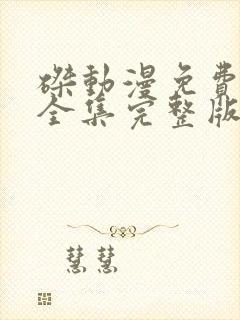 磔動漫免費
全集完整版
慧慧